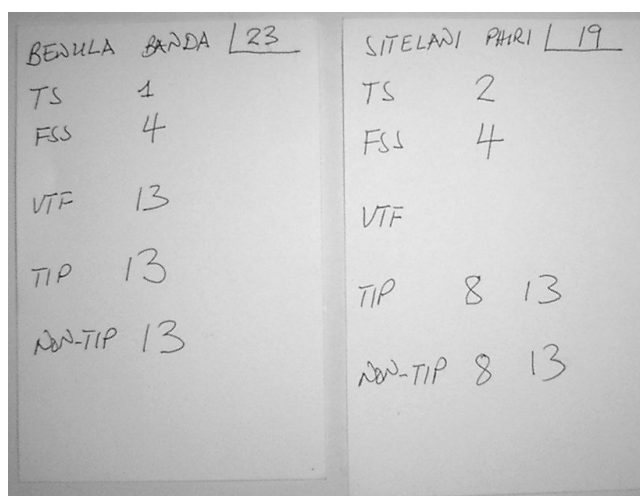 BENULA BANDA 23
TS 1
FSS 4
VTF 13
TIP 13
NON-TIP 13
SITELANI PHIRI 19
TS 2
FSS 4
VTF
TIP 8 13
NON-TIP 8 13